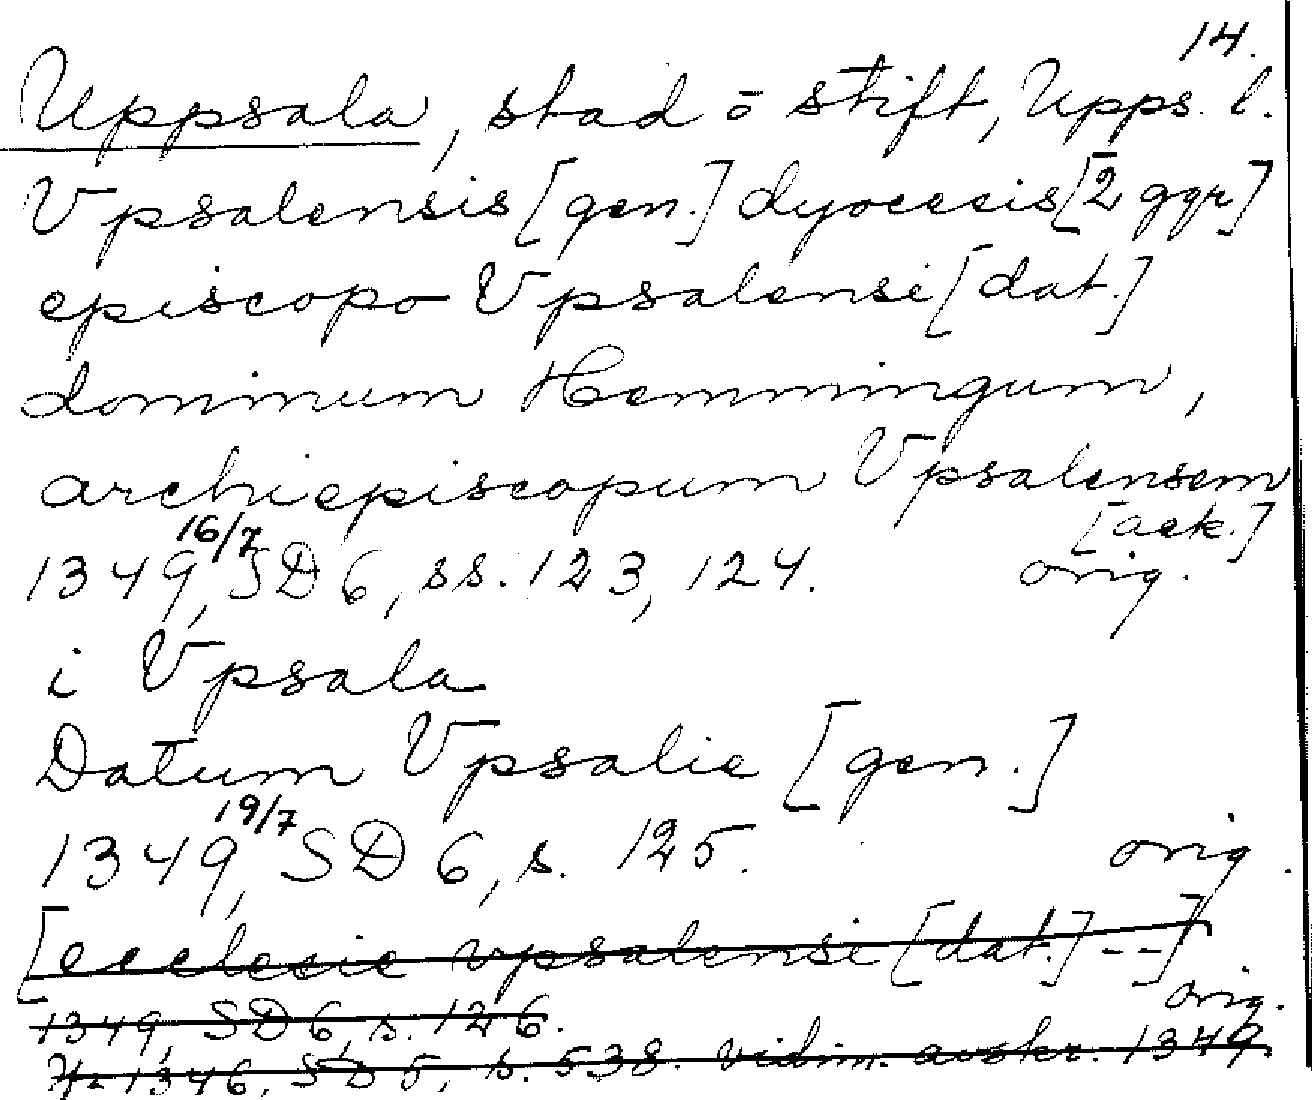 14.
Uppsala, stad o stift, Upps. l.
Vpsalensis [gen.] dyocesis [2 ggr]
episcopo Vpsalensi [dat.]
dominum Hemmingum,
archiepiscopum Vpsalensem
[ack.]
16/7
1349, SD 6, ss. 123, 124. orig.
i Vpsala
Datum Vpsalie [gen.]
19/7
1349, SD 6, s. 125. orig.
[ecclesie vpsalensi [dat.] --]
1349, SD 6, s. 126. orig.
1346, SD 5, s. 538. vidim. avskr. 1349.